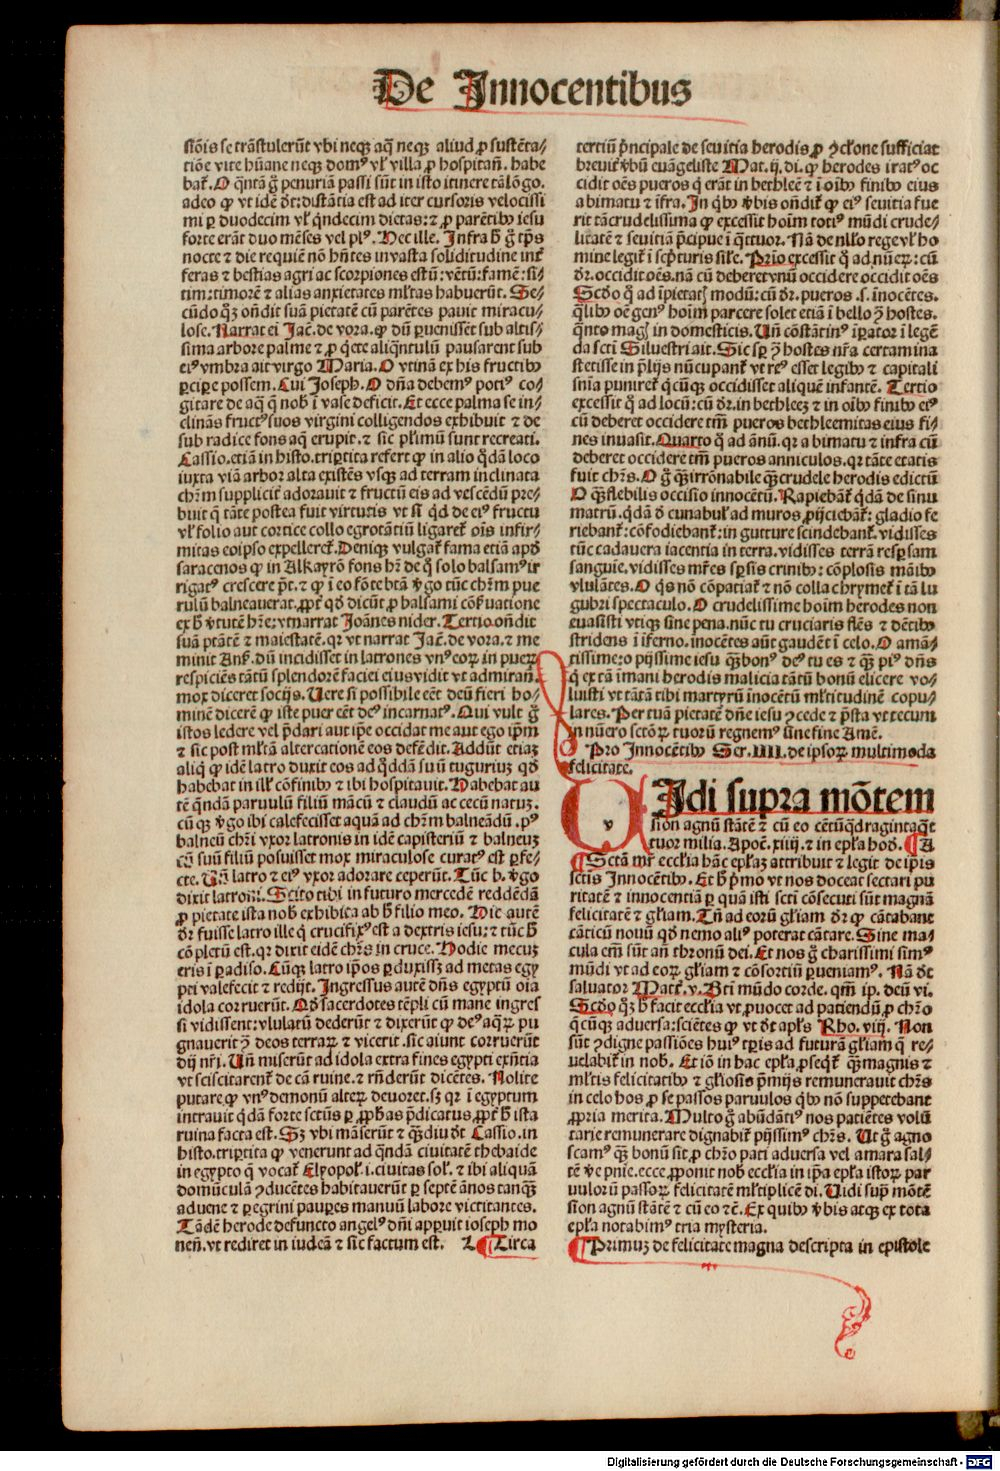 De Innocentibus
siōis se trāstulerūt vbi neqꝫ aq̄ neqꝫ aliud ꝓ sustēta⸗
tiōe vite hūane neqꝫ domꝰ vl̕ villa ꝓ hospitañ. habe
bat̕. O q̄nta g̊ penuriā passi sūt in isto itinere tālōgo.
adeo ꝙ vt idē d̄t: distātia est ad iter cursoris velocissi
mi ꝑ duodecim vl̕ q̄ndecim dietas: ⁊ ꝓ parētibꝰ iesu
forte erāt duo mēses vel plꝰ. Hec ille. Infra h̄ g̊ tp̄s
nocte ⁊ die requiē nō hn̄tes in vasta soliditudine int̕
feras ⁊ bestias agri ac scorpiones estū: vētū: famē: si⸗
tim: timorē ⁊ alias anxietates ml̕tas habuerūt. Se⸗
cūdo qꝫ oñdit suā pietatē cū parētes pauit miracu⸗
lose. Narrat ei Jac̄. de vora. ꝙ dū ꝑuenisset sub altis⸗
sima arbore palme ⁊ ꝓ q̄ete aliq̄ntulū pausarent sub
eiꝰ vmbra ait virgo Maria. O vtinā ex his fructibꝰ
ꝑciꝑe possem. Cui Joseph. O dn̄a debemꝰ potiꝰ co⸗
gitare de aq̄ q̄ nob̕ ī vase deficit. Et ecce palma se in⸗
clināns fructꝰ suos virgini colligendos exhibuit ⁊ de
sub radice fons aq̄ erupit. ⁊ sic pl̕imū sunt recreati.
Cassio. etiā in histo. triꝑtita refert ꝙ in alio q̄dā loco
iuxta viā arbor alta existēs vsqꝫ ad terram inclinata
chr̄m supplicit̕ adorauit ⁊ fructū eis ad vescēdū pre⸗
buit q̄ tāte postea fuit virtutis vt si q̄d de eiꝰ fructu
vl̕ folio aut cortice collo egrotātiū ligaret̕ oīs infir⸗
mitas eoipso expelleret̕. Deniqꝫ vulgat̕ fama etiā apd̕
saracenos ꝙ in Alkayrō fons hr̄ de q̊ solo balsamꝰ ir
rigatꝰ crescere pt̄. ⁊ ꝙ ī eo fōte btā v̓go tūc chr̄m pue
rulū balneauerat. ꝓpt̕ qd̕ dicūt ꝓ balsami cōẜuatione
ex h̄ v̓tutē hr̄e: vt narrat Joānes nider. Tertio oñdit
suā ptātē ⁊ maiestatē. qr vt narrat Jac̄. de vora. ⁊ me
minit Anẜ. dū incidisset in latrones vnꝰ eoꝝ in pueꝝ
respiciēs tātū splendorē faciei eius vidit vt admirañ.
mox diceret socijs. Uere si possibile eēt deū fieri ho⸗
minē dicerē ꝙ iste puer eēt deꝰ incarnatꝰ. Qui vult g̊
istos ledere vel p̄dari aut ip̄e occidat me aut ego ip̄m
⁊ sic post ml̕tā altercationē eos defēdit. Addūt etiaꝫ
aliq̄ ꝙ idē latro duxit eos ad q̄ddā suū tuguriuꝫ qd̕
habebat in ill̕ cōfinibꝰ ⁊ ibi hospitauit. Habebat au
tē q̄ndā paruulū filiū mācū ⁊ claudū ac cecū natuꝫ.
cū qꝫ v̓go ibi calefecisset aquā ad chr̄m balneādū. pꝰ
balneū chr̄i vxor latronis in idē capisteriū ⁊ balneuꝫ
cū suū filiū posuisset mox miraculose curatꝰ est ꝑfe⸗
cte. Uñ latro ⁊ eiꝰ vxor adorare ceperūt. Tūc b. v̓go
dixit latroni. Scito tibi in futuro mercedē reddēdā
ꝓ pietate ista nob̕ exhibita ab h̄ filio meo. Hic autē
d̄r fuisse latro ille q̄ crucifixꝰ est a dextris iesu: ⁊ tūc h̄
cōpletū est. qr dixit eidē chr̄s in cruce. Hodie mecuꝫ
eris ī ꝑadiso. Cūqꝫ latro ip̄os ꝑduxissꝫ ad metas egy
pti valefecit ⁊ redijt. Ingressus autē dn̄s egyptū oīa
idola corruerūt. Qd̕ sacerdotes tēpli cū mane ingres
si vidissent: vlulatū dederūt ⁊ dixerūt ꝙ deꝰ aq̄ꝝ pu
gnauerit ꝯ deos terraꝝ ⁊ vicerit. sic aiunt corruerūt
dij nr̄i. Uñ miserūt ad idola extra fines egypti exn̄tia
vt sciscitarent̕ de cā ruine. ⁊ rn̄derūt dicētes. Nolite
putare ꝙ vnꝰ demonū alteꝝ deuoret. sꝫ qr ī egyptum
intrauit q̄dā forte sctūs ꝑ ꝓph̄as p̄dicatus. ꝓpt̕ h̄ ista
ruina facta est. Sꝫ vbi māserūt ⁊ q̄ꝫdiu d̄t Cassio. in
histo. triꝑtita ꝙ venerunt ad q̄ndā ciuitatē thebaide
in egypto q̄ vocat̕ Elyopol̕. i. ciuitas sol̕. ⁊ ibi aliquā
domūculā ꝯducētes habitauerūt ꝑ septē ānos tanq̄ꝫ
aduene ⁊ ꝑegrini pauꝑes manuū labore victitantes.
Tādē herode defuncto angelꝰ dn̄i apparuit ioseph mo
neñ. vt rediret in iudeā ⁊ sic factum est. L ¶ Circa
tertiū p̄ncipale de seuitia herodis ꝓ ꝯcl̕one sufficiat
breuit̕ v̓bū euāgeliste Mat. ij. di. ꝙ herodes iratꝰ oc
cidit oēs pueros q̄ erāt in bethleē ⁊ ī oībꝰ finibꝰ eius
a bimatu ⁊ īfra. In q̄bꝰ v̓bis oñdit̕ ꝙ eiꝰ seuitia fue
rit tā crudelissima ꝙ excessit hoīm totiꝰ mūdi crude⸗
litatē ⁊ seuitiā p̄cipue ī q̄ttuor. Nā de nl̕lo rege vl̕ ho
mine legit̕ ī scp̄turis sil̕e. Prīo excessit q̊ ad nūeꝝ: cū
d̄r. occidit oēs. nā cū deberet vnū occidere occidit oēs
Scd̕o q̊ ad īpietatꝭ modū: cū d̄r. pueros .s. īnocētes.
q̄libꝰ oē genꝰ hoīm parcere solet etiā ī bello ꝯ hostes.
q̄nto magꝭ in domesticis. Uñ cōstātinꝰ īꝑator ī legē
da scti Siluestri ait. Sic sꝑ ꝯ hostes nr̄a certamina
stetisse in p̄lijs nūcupant̕ vt reꝰ esset legibꝰ ⁊ capitali
sn̄ia puniret̕ q̄cūqꝫ occidisset aliquē infantē. Tertio
excessit q̊ ad locū: cū d̄r. in bethleeꝫ ⁊ in oībꝰ finibꝰ eiꝰ
cū deberet occidere tm̄ pueros bethleemitas eius fi⸗
nes inuasit. Quarto q̊ ad ānū. qr a bimatu ⁊ infra cū
deberet occidere tm̄ pueros anniculos. qr tāte etatis
fuit chr̄s. O g̊ q̄ꝫ irrōnabile q̄ꝫ crudele herodis edictū
O q̄ꝫ flebilis occisio innocētū. Rapiebāt̕ q̄dā de sinu
matrū. q̄dā d̕ cunabul̕ ad muros ꝓijciebāt̕: gladio fe
riebant̕: cōfodiebant̕: in gutture scindebant̕. vidisses
tūc cadauera iacentia in terra. vidisses terrā resꝑsam
sanguīe. vidisses mr̄es sꝑsis crinibꝰ: cōplosis manībꝰ
vlulātes. O q̄s nō cōpatiat̕ ⁊ nō colla chrymet̕ ī tā lu
gubri spectaculo. O crudelissime hoīm herodes non
euasisti vtiqꝫ sine pena. nūc tu cruciaris flēs ⁊ dētibꝰ
stridens ī īferno. īnocētes aūt gaudēt ī celo. O amā⸗
tissime: o pijssime iesu q̄ꝫ bonꝰ deꝰ tu es ⁊ q̄ꝫ piꝰ dn̄s
q̄ ex tā īmani herodis malicia tātū bonū elicere vo⸗
luisti vt tātā tibi martyrū īnocētū ml̕titudinē copu⸗
lares. Per tuā pietatē dn̄e iesu ꝯcede ⁊ p̄sta vt tecum
in nūero sctōꝝ tuorū regnemꝰ sine fine Amē.
Pro Innocētibꝰ Ser. IIII. de ipsoꝝ multimoda
felicitate.
UIdi supra mōtem
sion agnū stātē ⁊ cū eo cētūq̄dragintaq̄t
tuor milia. Apoc̄. xiiij. ⁊ in epl̕a hod̕. ¶ A
¶ Sctā mr̄ eccl̕ia hāc epl̕aꝫ attribuit ⁊ legit de ip̄is
sctis Innocētibꝰ. Et h̄ p̄mo vt nos doceat sectari pu
ritatē ⁊ innocentiā ꝑ quā isti scti cōsecuti sūt magnā
felicitatē ⁊ gl̕iam. Tn̄ ad eorū gl̕iam d̄r ꝙ cātabant
cāticū nouū qd̕ nemo aliꝰ poterat cātare. Sine ma⸗
cula em̄ sūt añ thronū dei. Et nos g̊ charissimi simꝰ
mūdi vt ad eoꝝ gl̕iam ⁊ cōsortiū ꝑueniamꝰ. Nā d̄t
saluator Matt̕. v. Bt̄i mūdo corde. qm̄ ip̄. deū vi.
Scd̕o qꝫ h̄ facit eccl̕ia vt ꝓuocet ad patiendū ꝓ chr̄o
q̄cūqꝫ aduersa: sciētes ꝙ vt d̄t apl̕s Rho. viij. Non
sūt ꝯdigne passiōes huiꝰ tp̄ris ad futurā gl̕iam q̄ re⸗
uelabit̕ in nob̕. Et iō in hac epl̕a ꝓseqt̕ q̄ꝫ magnis ⁊
ml̕tis felicitatibꝰ ⁊ gl̕iosis p̄mijs remunerauit chr̄s
in celo hos ꝓ se passos paruulos q̄bꝰ nō suppetebant
ꝓpria merita. Multo g̊ abūdātiꝰ nos patiētes volū
tarie remunerare dignabit̕ pijssimꝰ chr̄s. Ut g̊ agno
scamꝰ q̄ꝫ bonū sit ꝓ chr̄o pati aduersa vel amara sal⸗
tē v̓e pnīe. ecce ꝓponit nob̕ eccl̕ia in ip̄a epl̕a istoꝝ par
uulorū passoꝝ felicitatē ml̕tiplicē di. Uidi supͣ mōtē
sion agnū stātē ⁊ cū eo ⁊c̄. Ex quibꝰ v̓bis atqꝫ ex tota
epl̕a notabimꝰ tria mysteria.
¶ Primuꝫ de felicitate magna descripta in epistole
Digitalisierung gefördert durch die Deutsche Forschungsgemeinschaft - DFG